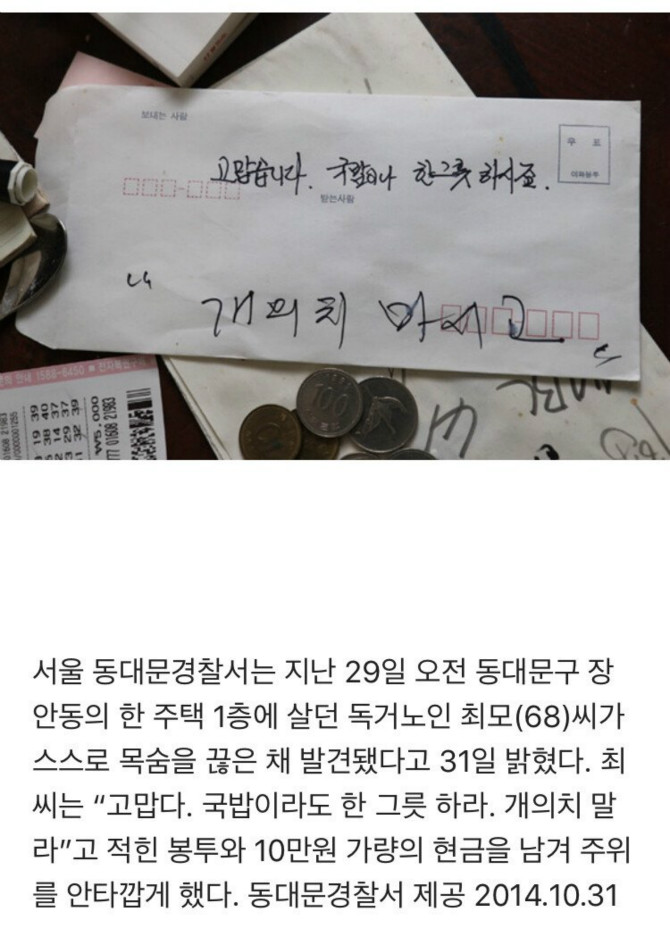 보내는 사람
우 표
고맙습니다. 국밥이나 한그릇 하시죠.
받는사람
“ 개의치 마시고 ”
1588-6450
100
서울 동대문경찰서는 지난 29일 오전 동대문구 장
안동의 한 주택 1층에 살던 독거노인 최모(68)씨가
스스로 목숨을 끊은 채 발견됐다고 31일 밝혔다. 최
씨는 “고맙다. 국밥이라도 한 그릇 하라. 개의치 말
라”고 적힌 봉투와 10만원 가량의 현금을 남겨 주위
를 안타깝게 했다. 동대문경찰서 제공 2014.10.31